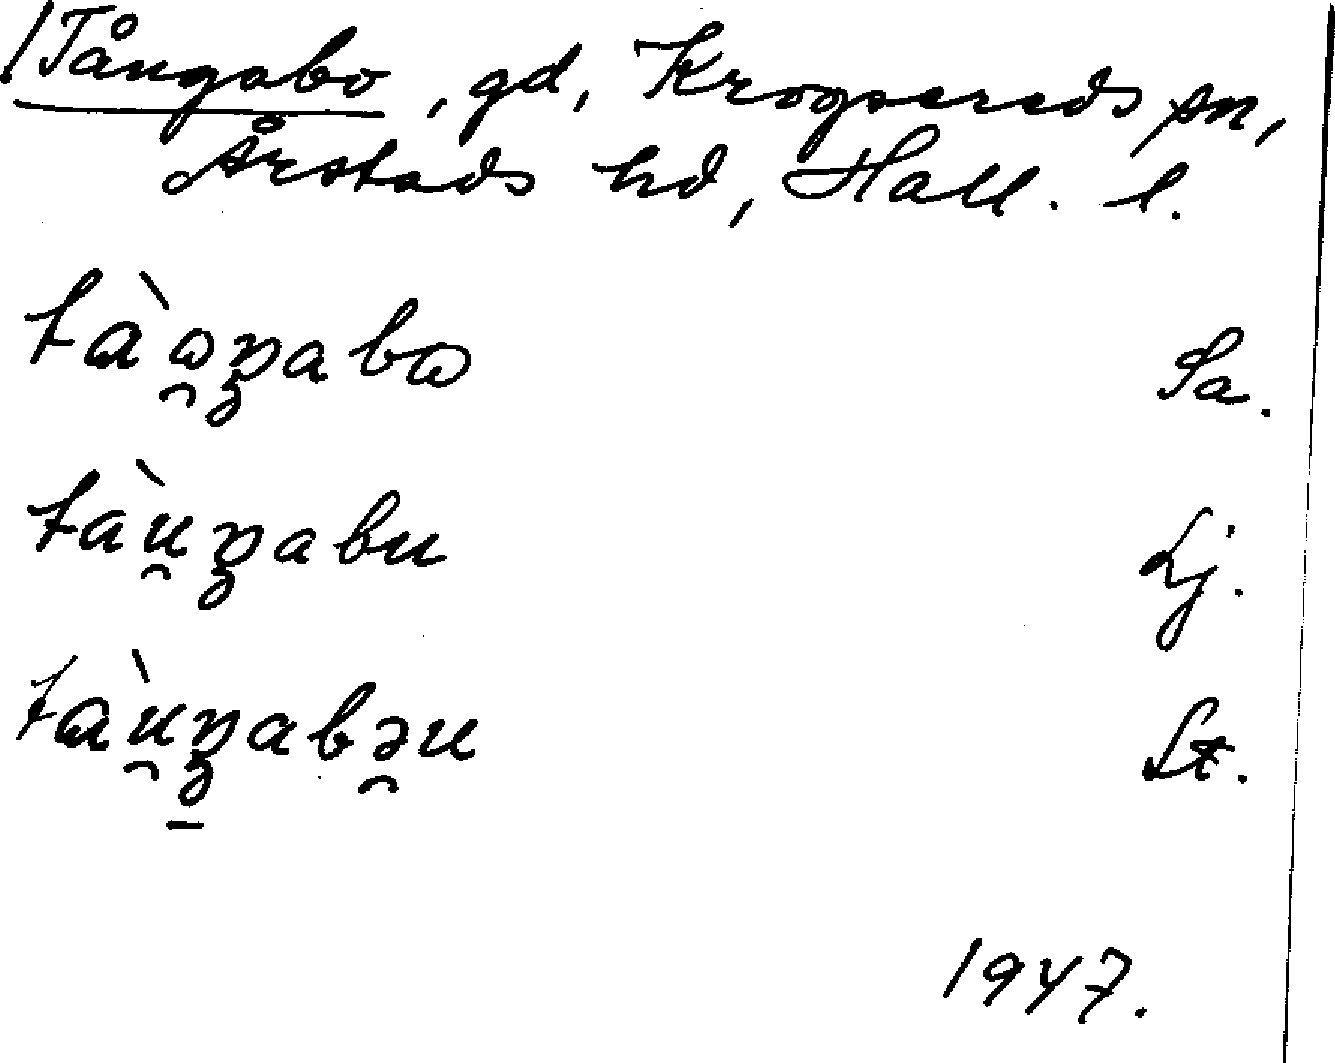 /Tångabo, gd, Krogsereds sn,
Årstads hd, Hall. l.
tɑ̀ɷ̯ŋabɷ Sa.
tàu̯ŋabu Lj.
tɑ̀u̯ŋ̠abə̯u St.
1947.